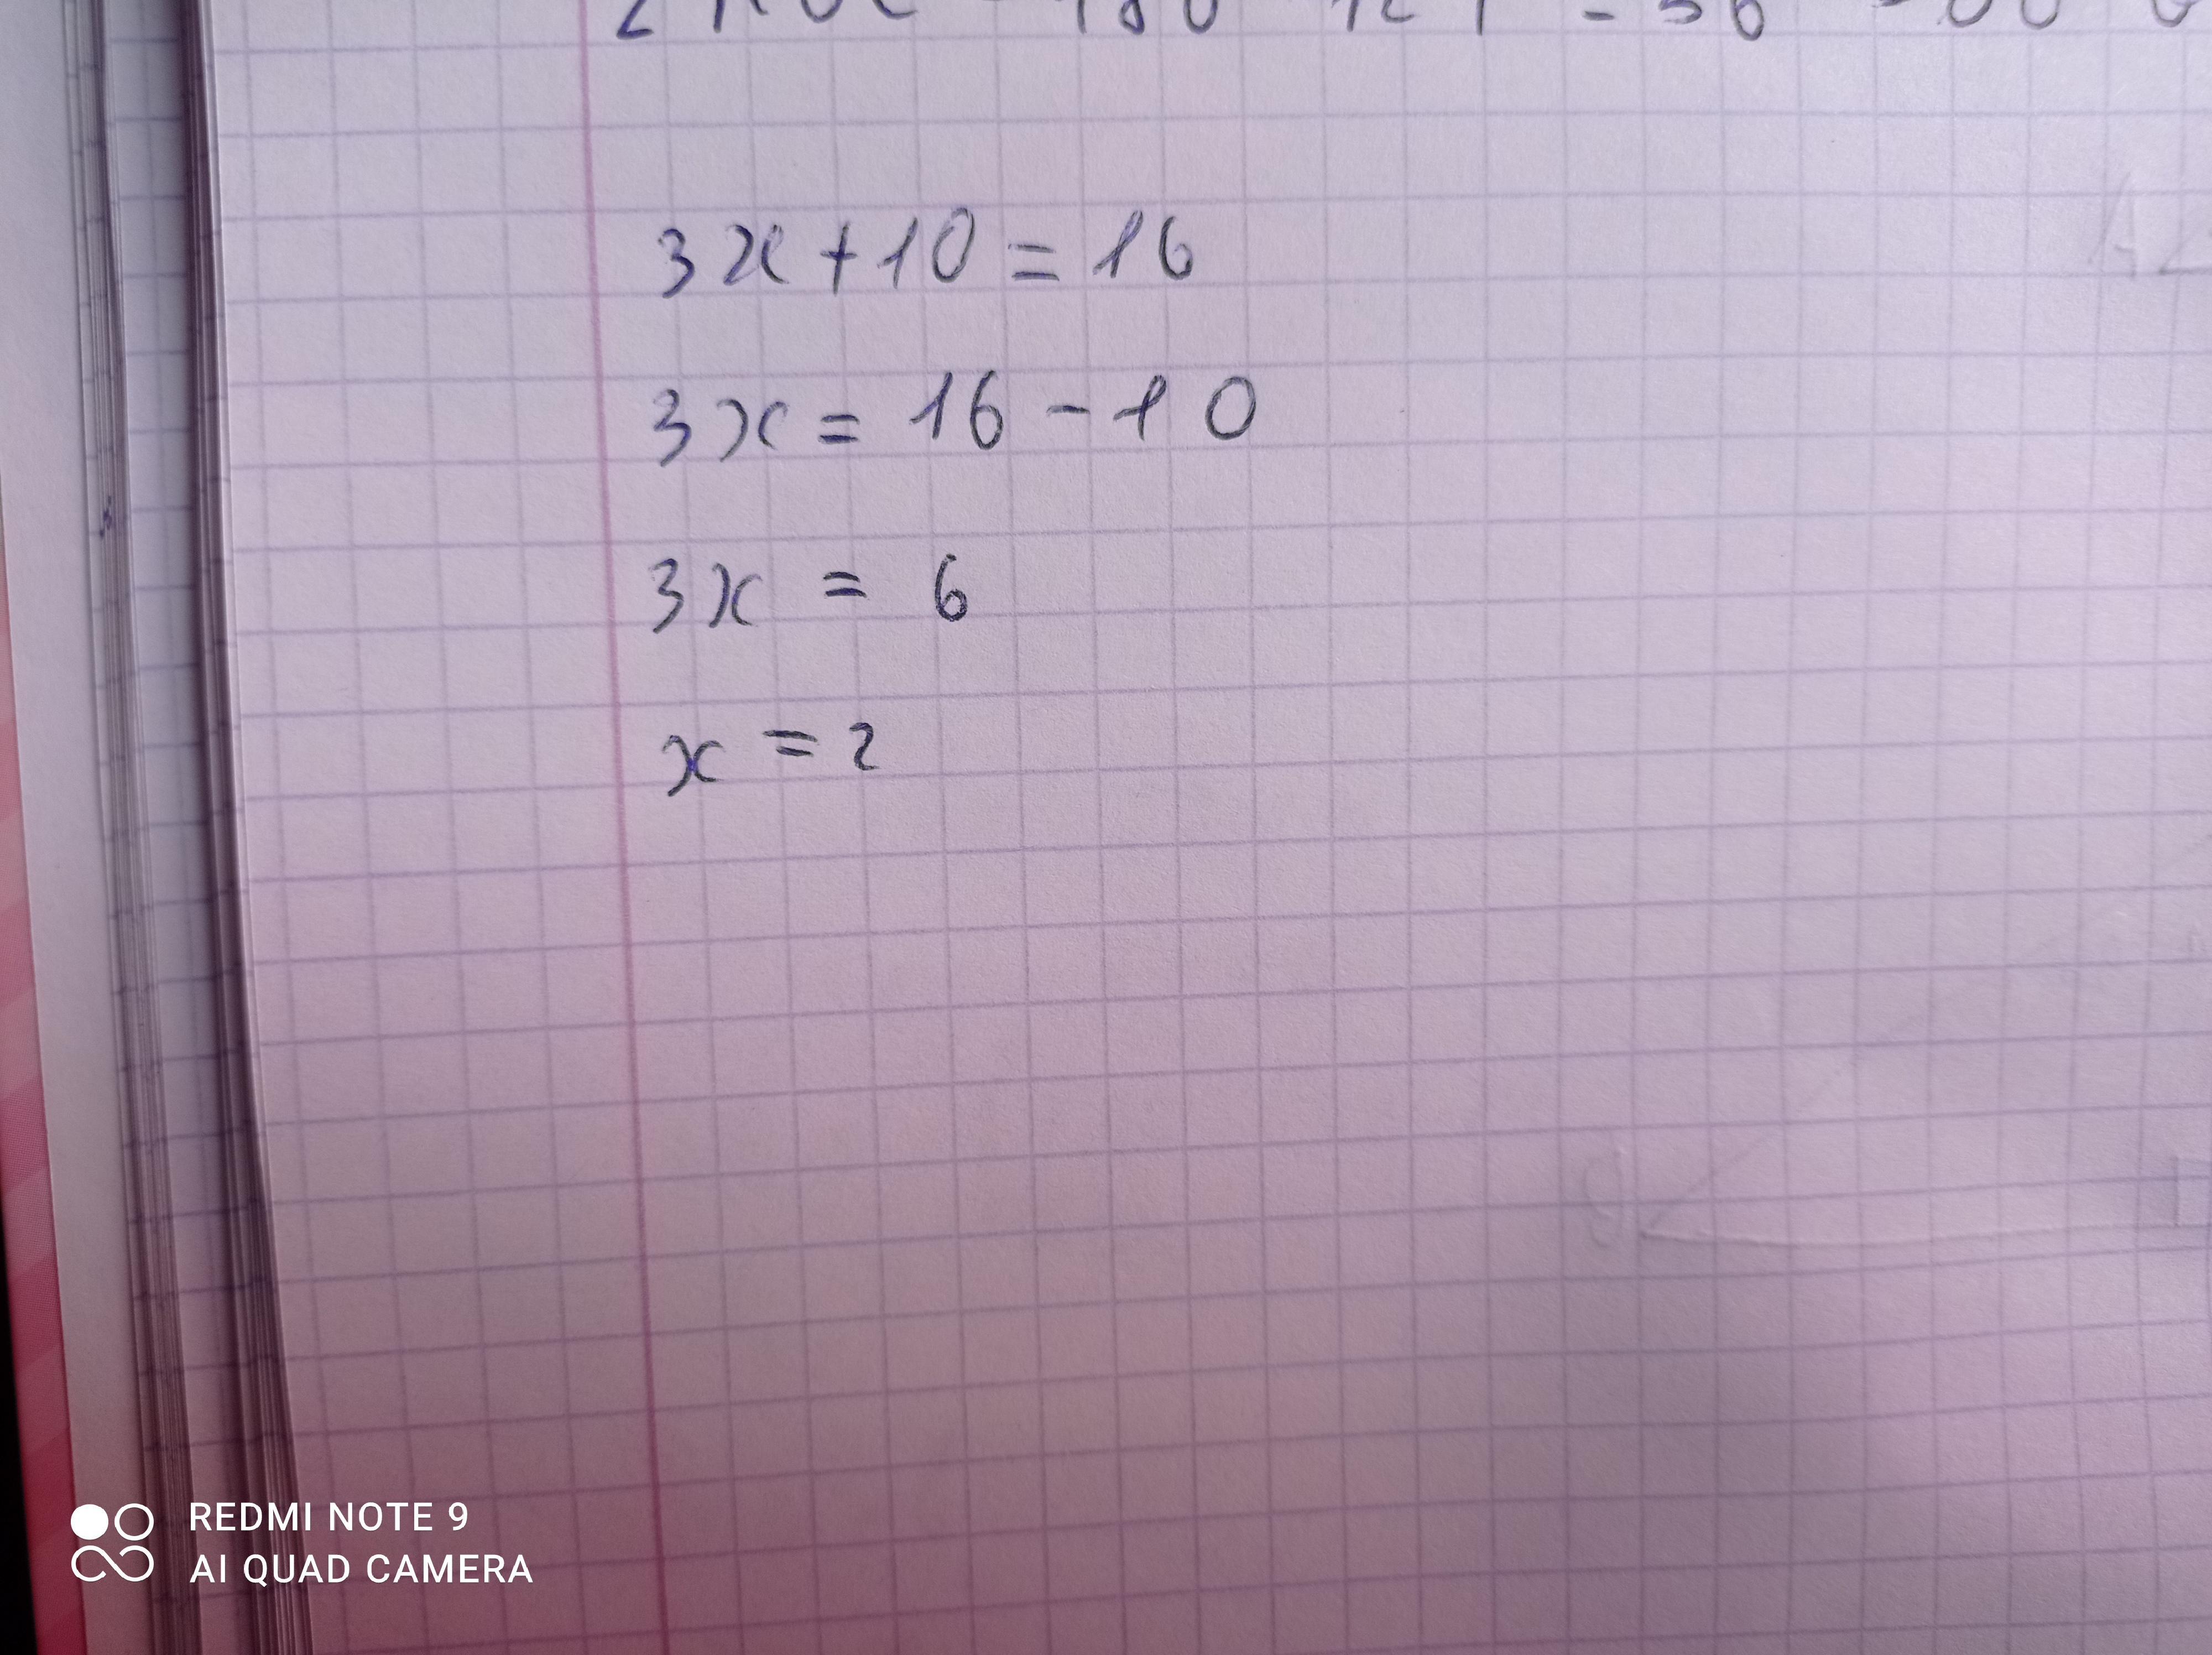 3x+10=16
3x=16-10
3x = 6
x = 2
REDMI NOTE 9
AI QUAD CAMERA